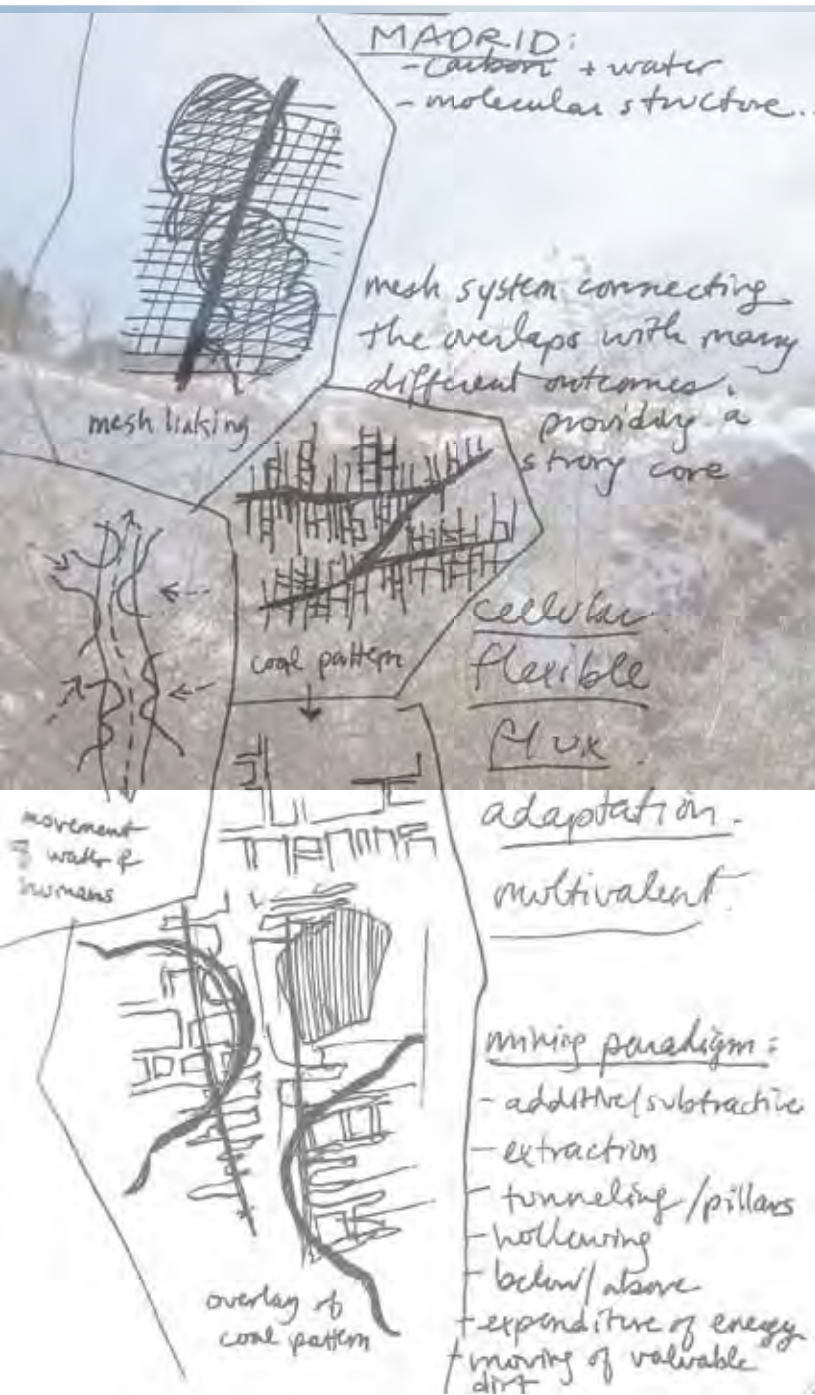 MADRID:
- carbon + water
- molecular structure...
mesh system connecting
the overlaps with many
different outcomes.
providing a
strong core
mesh linking
coal pattern
cellular
flexible
flux
adaptation.
multivalent.
movement
water &
humans
mining paradigm:
- additive/subtractive
- extraction
- tunneling/pillars
- hollowing
- below/above
- expenditure of energy
- moving of valuable
dirt
overlay of
coal pattern